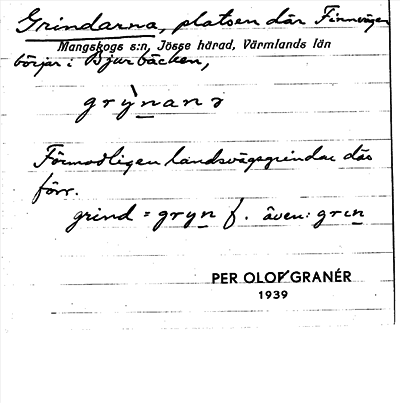 Grindarna, platsen där Finnvägen
Mangskogs s:n, Jösse härad, Värmlands län
börjar i Bjurbäcken,
grỳnanɂ
Förmodligen landsvägsgrindar där
förr.
grind = gryn f. även: grın
PER OLOF GRANÉR
1939